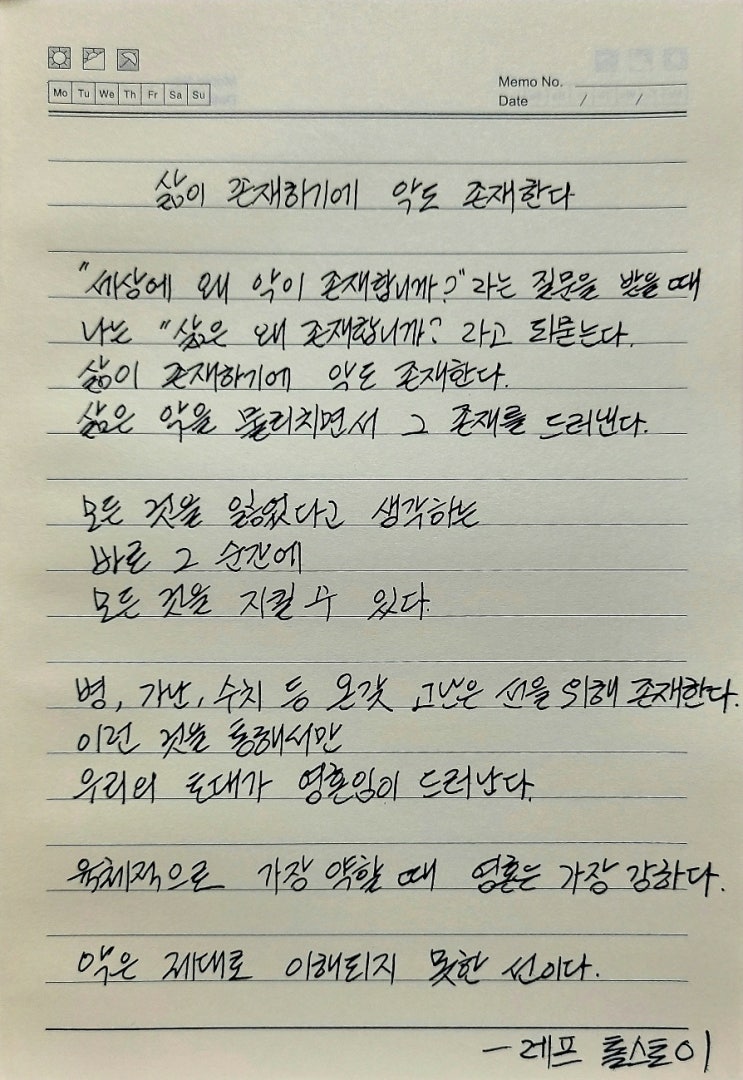 Mo Tu We Th Fr Sa Su
Memo No.
Date / /
삶이 존재하기에 악도 존재한다
"세상에 왜 악이 존재합니까?"라는 질문을 받을 때
나는 "삶은 왜 존재합니까? 라고 되묻는다.
삶이 존재하기에 악도 존재한다.
삶은 악을 물리치면서 그 존재를 드러낸다.
모든 것을 잃었다고 생각하는
바로 그 순간에
모든 것을 지킬 수 있다.
병, 가난, 수치 등 온갖 고난은 선을 위해 존재한다.
이런 것을 통해서만
우리의 토대가 영혼임이 드러난다.
육체적으로 가장 약할 때 영혼은 가장 강하다.
악은 제대로 이해되지 못한 선이다.
- 레프 톨스토이